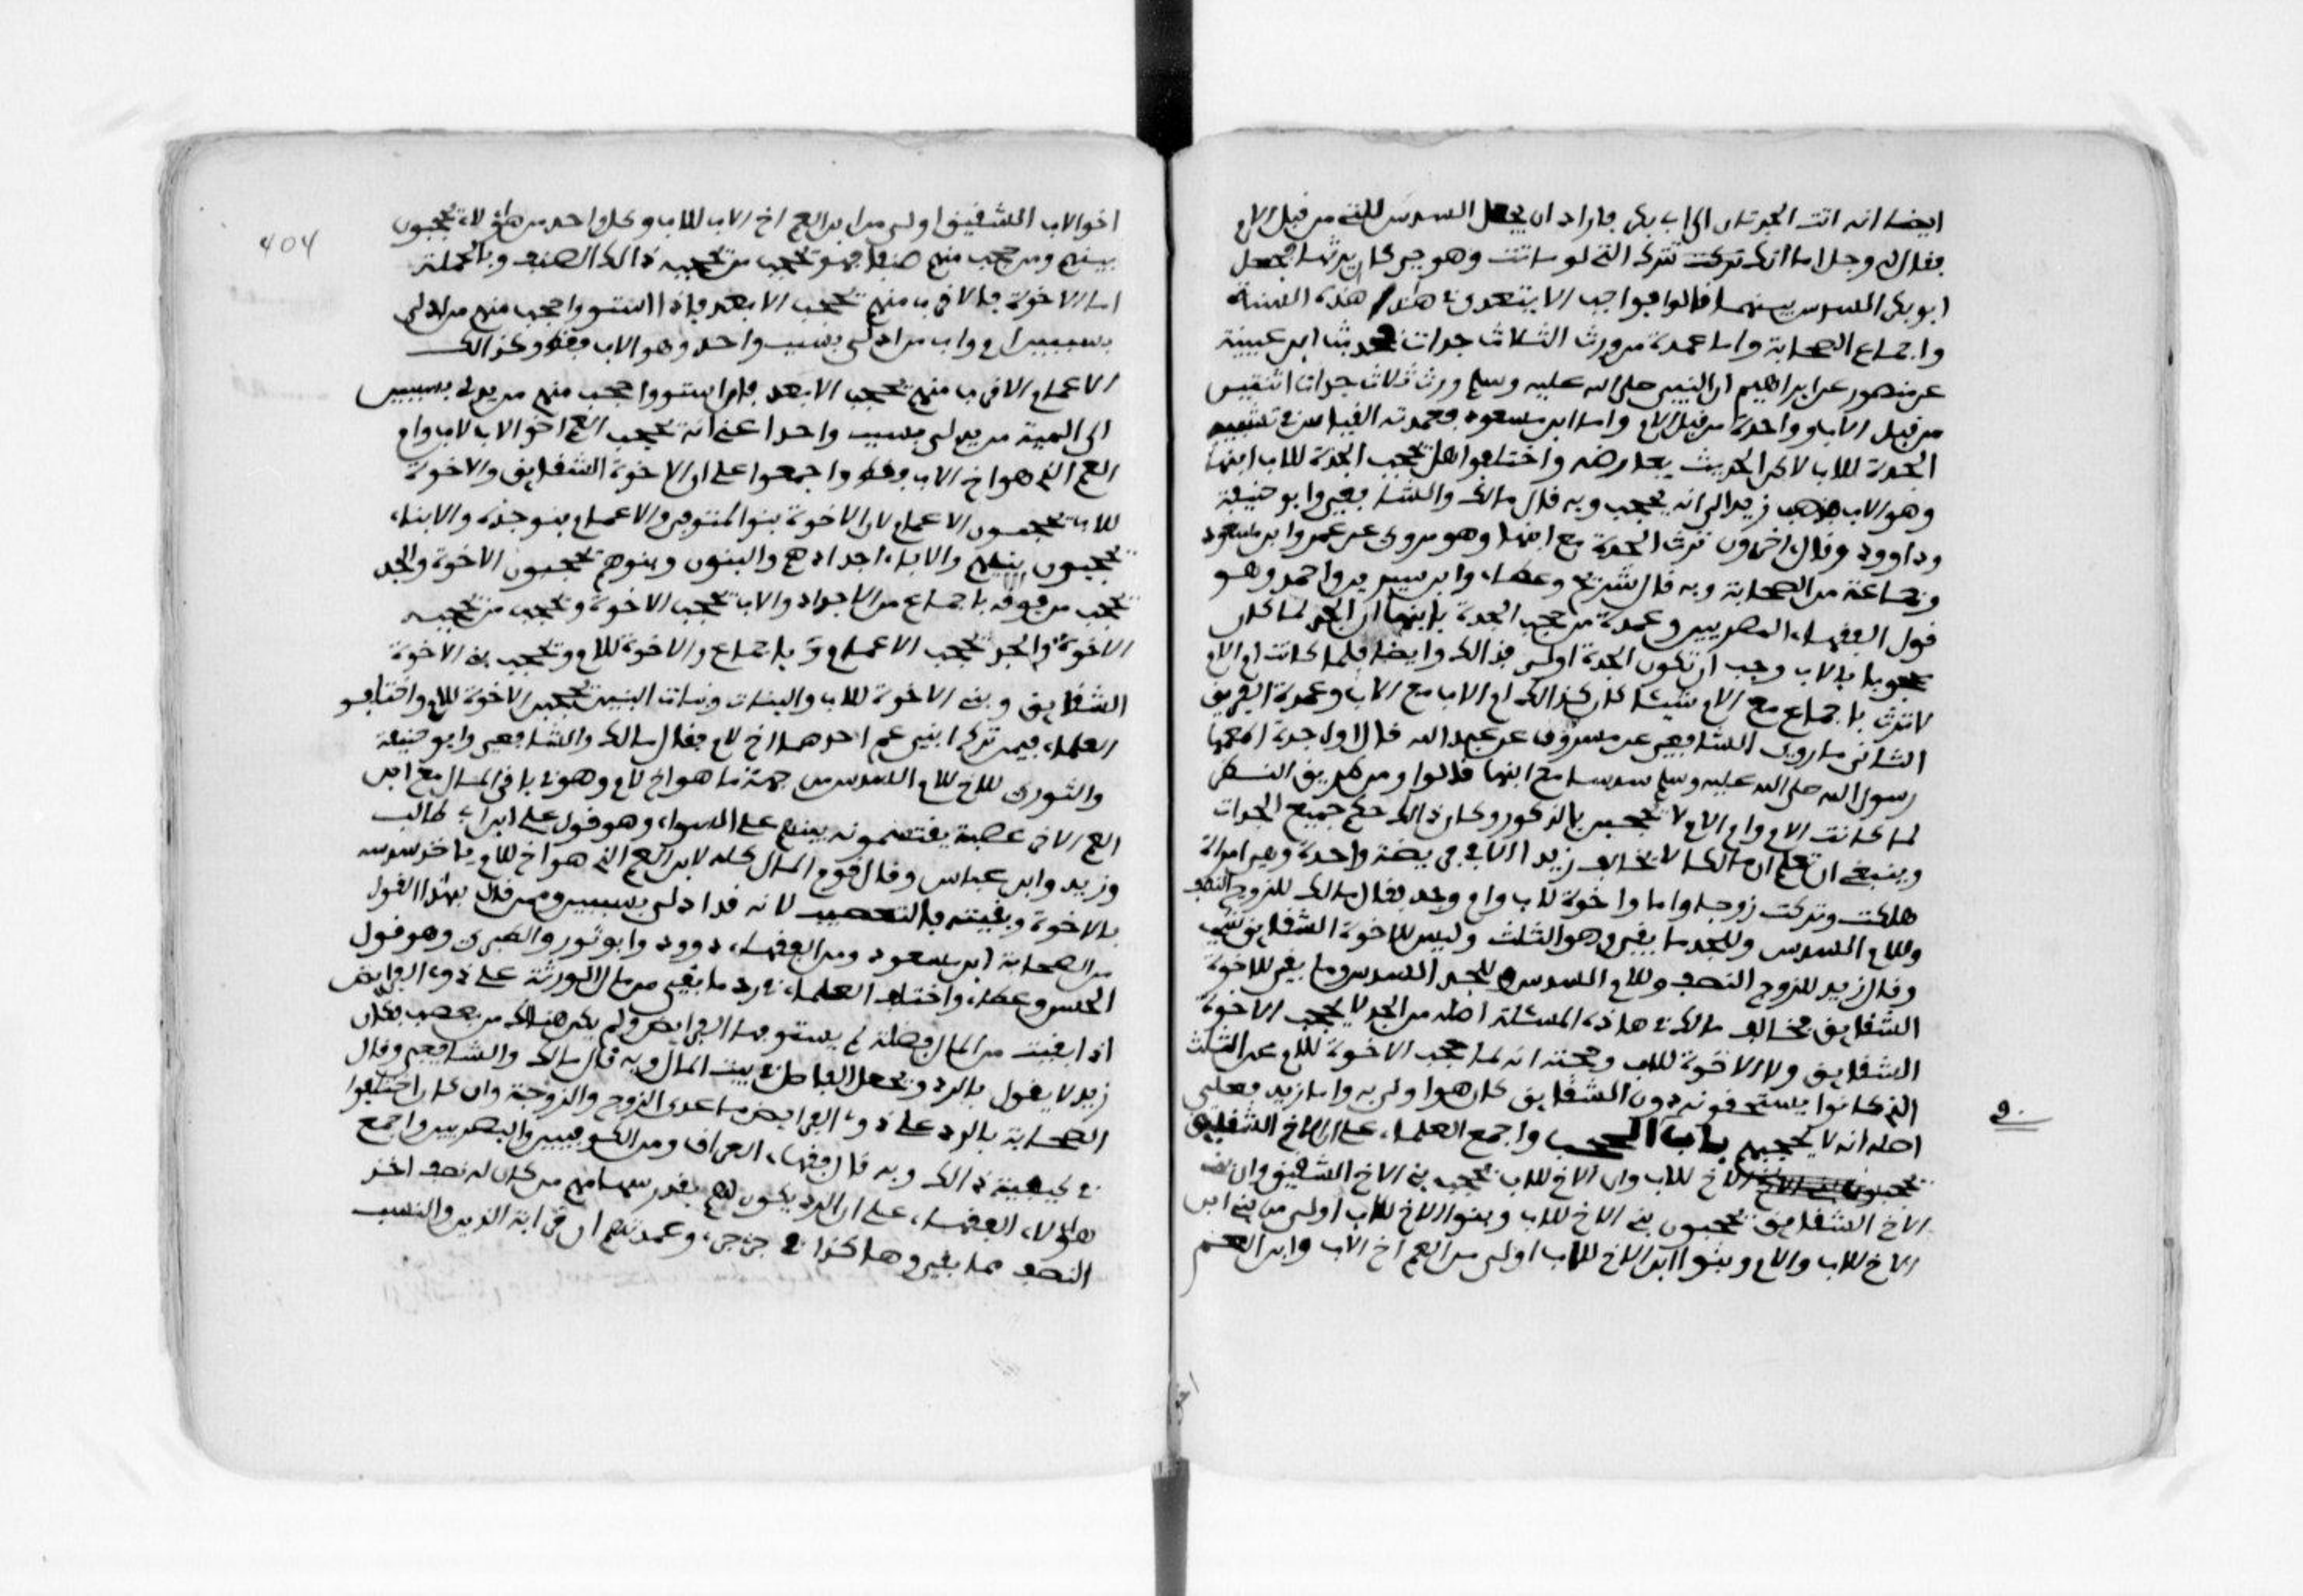 ايضا انه اتت الجدتان الى ابى بكر فاراد ان يجعل السدس للتي من قبل الام
فقال له رجل اما انك تركت تترك التي لو ماتت وهو حي كان يرثها فجعل
ابو بكر السدس بينهما قالوا فواجب الا يتعدى في هذا هذه السنة
واجماع الصحابة واما عمدة من ورث الثلاث جدات فحديث ابن عيينة
عن منصور عن ابراهيم ان النبي صلى الله عليه وسلم ورث ثلاث جدات اثنتين
من قبل الاب وواحدة من قبل الام واما ابن مسعود فعمدته القياس في تشبيه
الجدة للاب لاكن الحديث يعارضه واختلفوا هل تحجب الجدة للاب ابنها
وهو الاب فذهب زيد الى انه يحجب وبه قال مالك والشافعي وابو حنيفة
وداوود وقال اخرون ترث الجدة مع ابنها وهو مروي عن عمر وابن مسعود
وجماعة من الصحابة وبه قال شريح وعطاء وابن سيرين واحمد وهو
قول الفقهاء المصريين وعمدة من حجب الجدة بابنها ان الجد لما كان
محجوبا بالاب وجب ان تكون الجدة اولى بذالك وايضا فلما كانت ام الام
لا ترث باجماع مع الام شيئا كان كذالك ام الاب مع الاب وعمدة الفريق
الثاني ما روى الشافعي عن مسروق عن عبد الله قال اول جدة اعطاها
رسول الله صلى الله عليه وسلم سدسا مع ابنها قالوا ومن طريق النظر
لما كانت الام وام الام لا تحجبن بالذكور وكان ذالك حكم جميع الجدات
وينبغي ان تعلم ان مالكا لا يخالف زيدا الا في فريضة واحدة وهي امراة
هلكت وتركت زوجا واما واخوة لاب وام وجد فقال مالك للزوج النصف
وللام السدس وللجد ما بقي وهو الثلث وليس للاخوة الشقايق شي
وقال زيد للزوج النصف وللام السدس وللجد السدس وما بقي للاخوة
الشقايق فخالف مالك في هاذه المسئلة اصله من الجد لا يحجب الاخوة
الشقايق ولا الاخوة للاب وحجته انه لما حجب الاخوة للام عن الثلث
الذي كانوا يستحقونه دون الشقايق كان هو اولى به واما زيد فعلى
اصله انه لا يحجبهم باب الحجب واجمع العلماء على ان الاخ الشقايق
تحجبون الاخ للاب وان الاخ للاب تحجب بني الاخ الشقيق وان بني
الاخ الشقايق تحجبون بني الاخ للاب وبنو الاخ للاب اولى من بني ابن
الاخ للاب والام وبنوا ابن الاخ للاب اولى من العم اخ الاب وابن العم
اخ
404
اخو الاب الشقيق اولى من ابن العم اخ الاب للاب وكل واحد من هاؤلاء تحجبون
بينهم ومن حجب منهم صنفا فهو تحجب من تحجبه ذالك الصنف وبالجملة
اما الاخوة فالاقرب منهم تحجب الابعد فاذا استووا حجب منهم من ادلى
بسببين ام واب من ادلى بسبب واحد وهو الاب فقط وكذالك
الاعمام الاقرب منهم تحجب الابعد فان استووا حجب منهم من يدلي بسببين
الى الميت من يدلى بسبب واحد اعني انه يحجب العم اخو الاب لاب وام
العم الذي هو اخ الاب فقط واجمعوا على ان الاخوة الشقايق والاخوة
للاب تحجبون الاعمام لان الاخوة بنو المتوفى والاعمام بنو جده والابناء
تحجبون بنيهم والاباء اجدادهم والبنون وبنوهم تحجبون الاخوة والجد
تحجب من فوقه باجماع من الاجداد والاب تحجب الاخوة وتحجب من تحجبه
الاخوة والجد تحجب الاعمام باجماع والاخوة للام وتحجب بني الاخوة
الشقايق وبني الاخوة للاب والبنات وبنات البنين تحجبن الاخوة للام واختلف
العلماء فيمن ترك ابني عم احدهما اخ لام فقال مالك والشافعي وابو حنيفة
والثوري للاخ للام السدس من جهة ما هو اخ لام وهو في باقي المال مع ابن
العم الاخر عصبة يقتسمونه بينهم على السواء وهو قول علي ابن ابى طالب
وزيد وابن عباس وقال قوم المال كله لابن العم الذي هو اخ للام ياخذ سدسه
بالاخوة وبقيته بالتعصيب لانه قد ادلى بسببين وممن قال بهذا القول
من الصحابة ابن مسعود ومن الفقهاء دوود وابو ثور والطبري وهو قول
الحسن وعطاء واختلف العلماء في رد ما بقي من مال الورثة على ذوي الفرايض
اذا بقيت من المال فضلة لم يستوفها الفرايض ولم يكن هناك من يعصب فكان
زيد لا يقول بالرد وتجعل الفاضل في بيت المال وبه قال مالك والشافعي وقال
الصحابة بالرد على ذوي الفرايض ما عدى الزوج والزوجة وان كان اختلفوا
في كيفية ذالك وبه قال فقهاء العراق ومن الكوفيين والبصريين واجمع
هاؤلاء الفقهاء على ان الرد يكون لهم بقدر سهامهم من كان له نصف اخذ
النصف مما بقي وهاكذا في جزء جزء وعمدتهم ان قرابة الدين والنسب